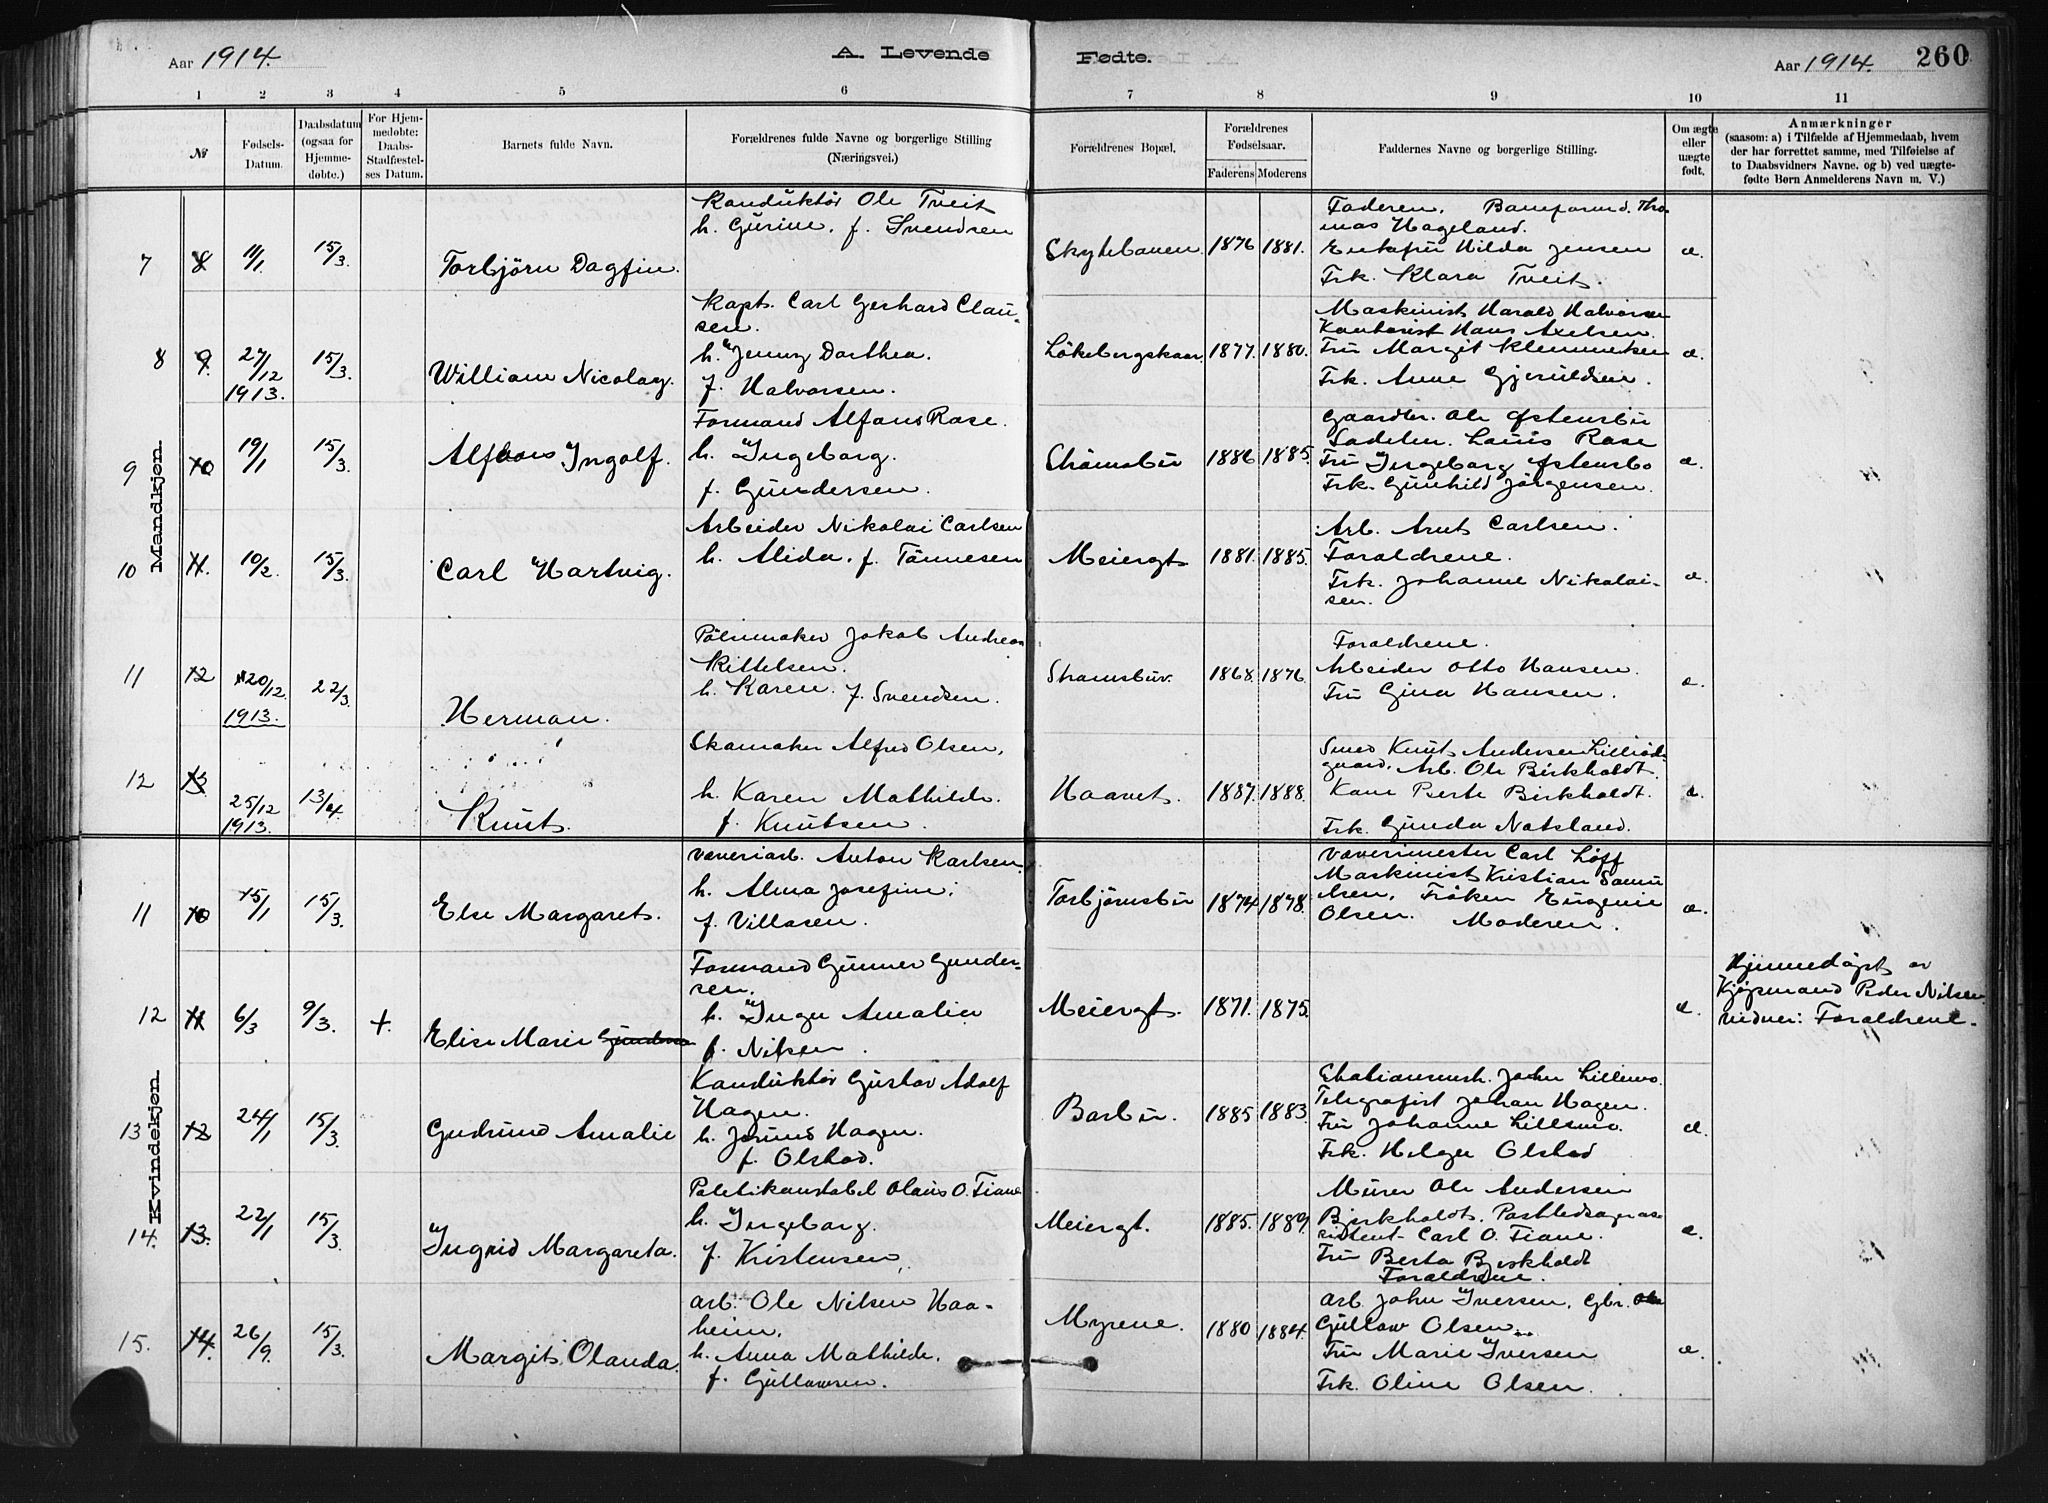 Aar 1914. A. Levende Fødte. Aar 1914. 260
1 2 3 4 5 6 7 8 9 10 11
№
Fødsels-
Datum.
Daabsdatum
(ogsaa for
Hjemme-
døbte.)
For Hjem-
medøbte:
Daabs-
Stadfæstel-
ses Datum.
Barnets fulde Navn.
Forældrenes fulde Navne og borgerlige Stilling
(Næringsvei.)
Forældrenes Bopæl.
Forældrenes
Fødselsaar.
Faderens Moderens
Faddernes Navne og borgerlige Stilling.
Om ægte
eller
uægte
født.
Anmærkninger
(saasom: a) i Tilfælde af Hjemmedaab, hvem
der har forrettet samme, med Tilføielse af
to Daabsvidners Navne. og b) ved uægte-
fødte Børn Anmelderens Navn m. V.)
Mandkjøn
7 8 11/1 15/3. Torbjörn Dagfin.
Konduktör Ole Tveit
h. Gurine. f. Svendsen
Skytebanen 1876 1881.
Faderen. Tho-
mas Hageland.
Enkefru Hilda Jensen
Frk. Klara Tveit.
æ.
8 9. 27/12 1913. 15/3. William Nicolay.
Kapt. Carl Gerhard Clau-
sen.
h. Jenny Dorthea.
f. Halvorsen.
Lökebergskaar 1877. 1880.
Maskinist Harald Halvorsen
Kontorist Hans Axelsen.
Fru Margit Klemmetsen
Frk. Anne Gjeruldsen.
æ.
9 10 19/1 15/3. Alfons Ingolf.
Formand Alfons Rose.
h. Ingeborg.
f. Gundersen.
Strömsbu 1886 1885.
Gaardbr. Ole Östensbu
Sadelm. Louis Rose
Fru Ingeborg Östensbo
Frk. Gunhild Jörgensen.
æ.
10 11. 10/2. 15/3. Carl Hartvig.
Arbeider Nikolai Carlsen
h. Alida. f. Tönnesen
Meiergt 1881. 1885.
Arb. Arnt Carlsen.
Foraldrene.
Frk. Johanne Nikolai-
sen.
æ.
11 12 20/12. 1913. 22/3. Herman.
Pölsemaker Jakob Andreas
Kittelsen.
h. Karen. f. Svendsen.
Stromsbu. 1868. 1876.
Foraldrene.
Arbeider Otto Hansen.
Fru Gina Hansen.
æ.
12 13. 25/12 1913. 13/4 Knut.
Skomaker Alfred Olsen,
h. Karen Mathilde.
f. Knutsen.
Haavet. 1887. 1888.
Smed Knut Andersen Lilleöd-
gaard. Arb. Ole Birkholdt.
Kone Berte Birkholdt.
Frk. Gunda Natsland.
æ.
Kvindekjøn
11 10 15/1 15/3. Else Margaret.
Væveriarb. Anton Karlsen.
h. Alma Josefine.
f. Villasen.
Torbjörnsbu 1874 1878.
Vævermester Carl Löff
Maskinist Kristian Samu
elsen. Fröken Eugenie
Olsen. Moderen.
æ.
12 11 6/3 9/3. +. Elise Marie Gundersen
Formand Gunner Gunder-
sen.
h. Inga Amalie
f. Nilsen.
Meiergt. 1871. 1875.
æ.
Hjemmedöpt av
Kjöpmand Peder Nilsen.
Vidner: Foraldrene.
13 12 24/1 15/3. Gudrund Amalie
Konduktör Gustav Adolf
Hagen.
h. Jorund Hagen.
f. Olstad.
Barbu. 1885 1883.
Stationsmst. John Lillemo.
Telegrafist Johan Hagen.
Fru Johanne Lillemo.
Frk. Helga Olstad
æ.
14. 13. 22/1 15/3. Ingrid Margareta.
Politikonstabel Olaus O. Fiane
h. Ingeborg.
f. Kristensen.
Meiergt. 1885. 1889.
Murer Ole Andersen
Bjerkholdt. Postledsageras-
sistent Carl O. Fiane.
Fru Berta Bjerkholdt
Foraldrene.
æ.
15. 14. 26/9. 15/3. Margit Olanda.
Arb. Ole Nilsen Haa-
heim.
h. Anna Mathilde.
f. Gullowsen.
Myrene. 1880 1884.
Arb. John Iversen. Gbr. Ole
Gullow Olsen.
Fru Marie Iversen
Frk. Oline Olsen.
æ.